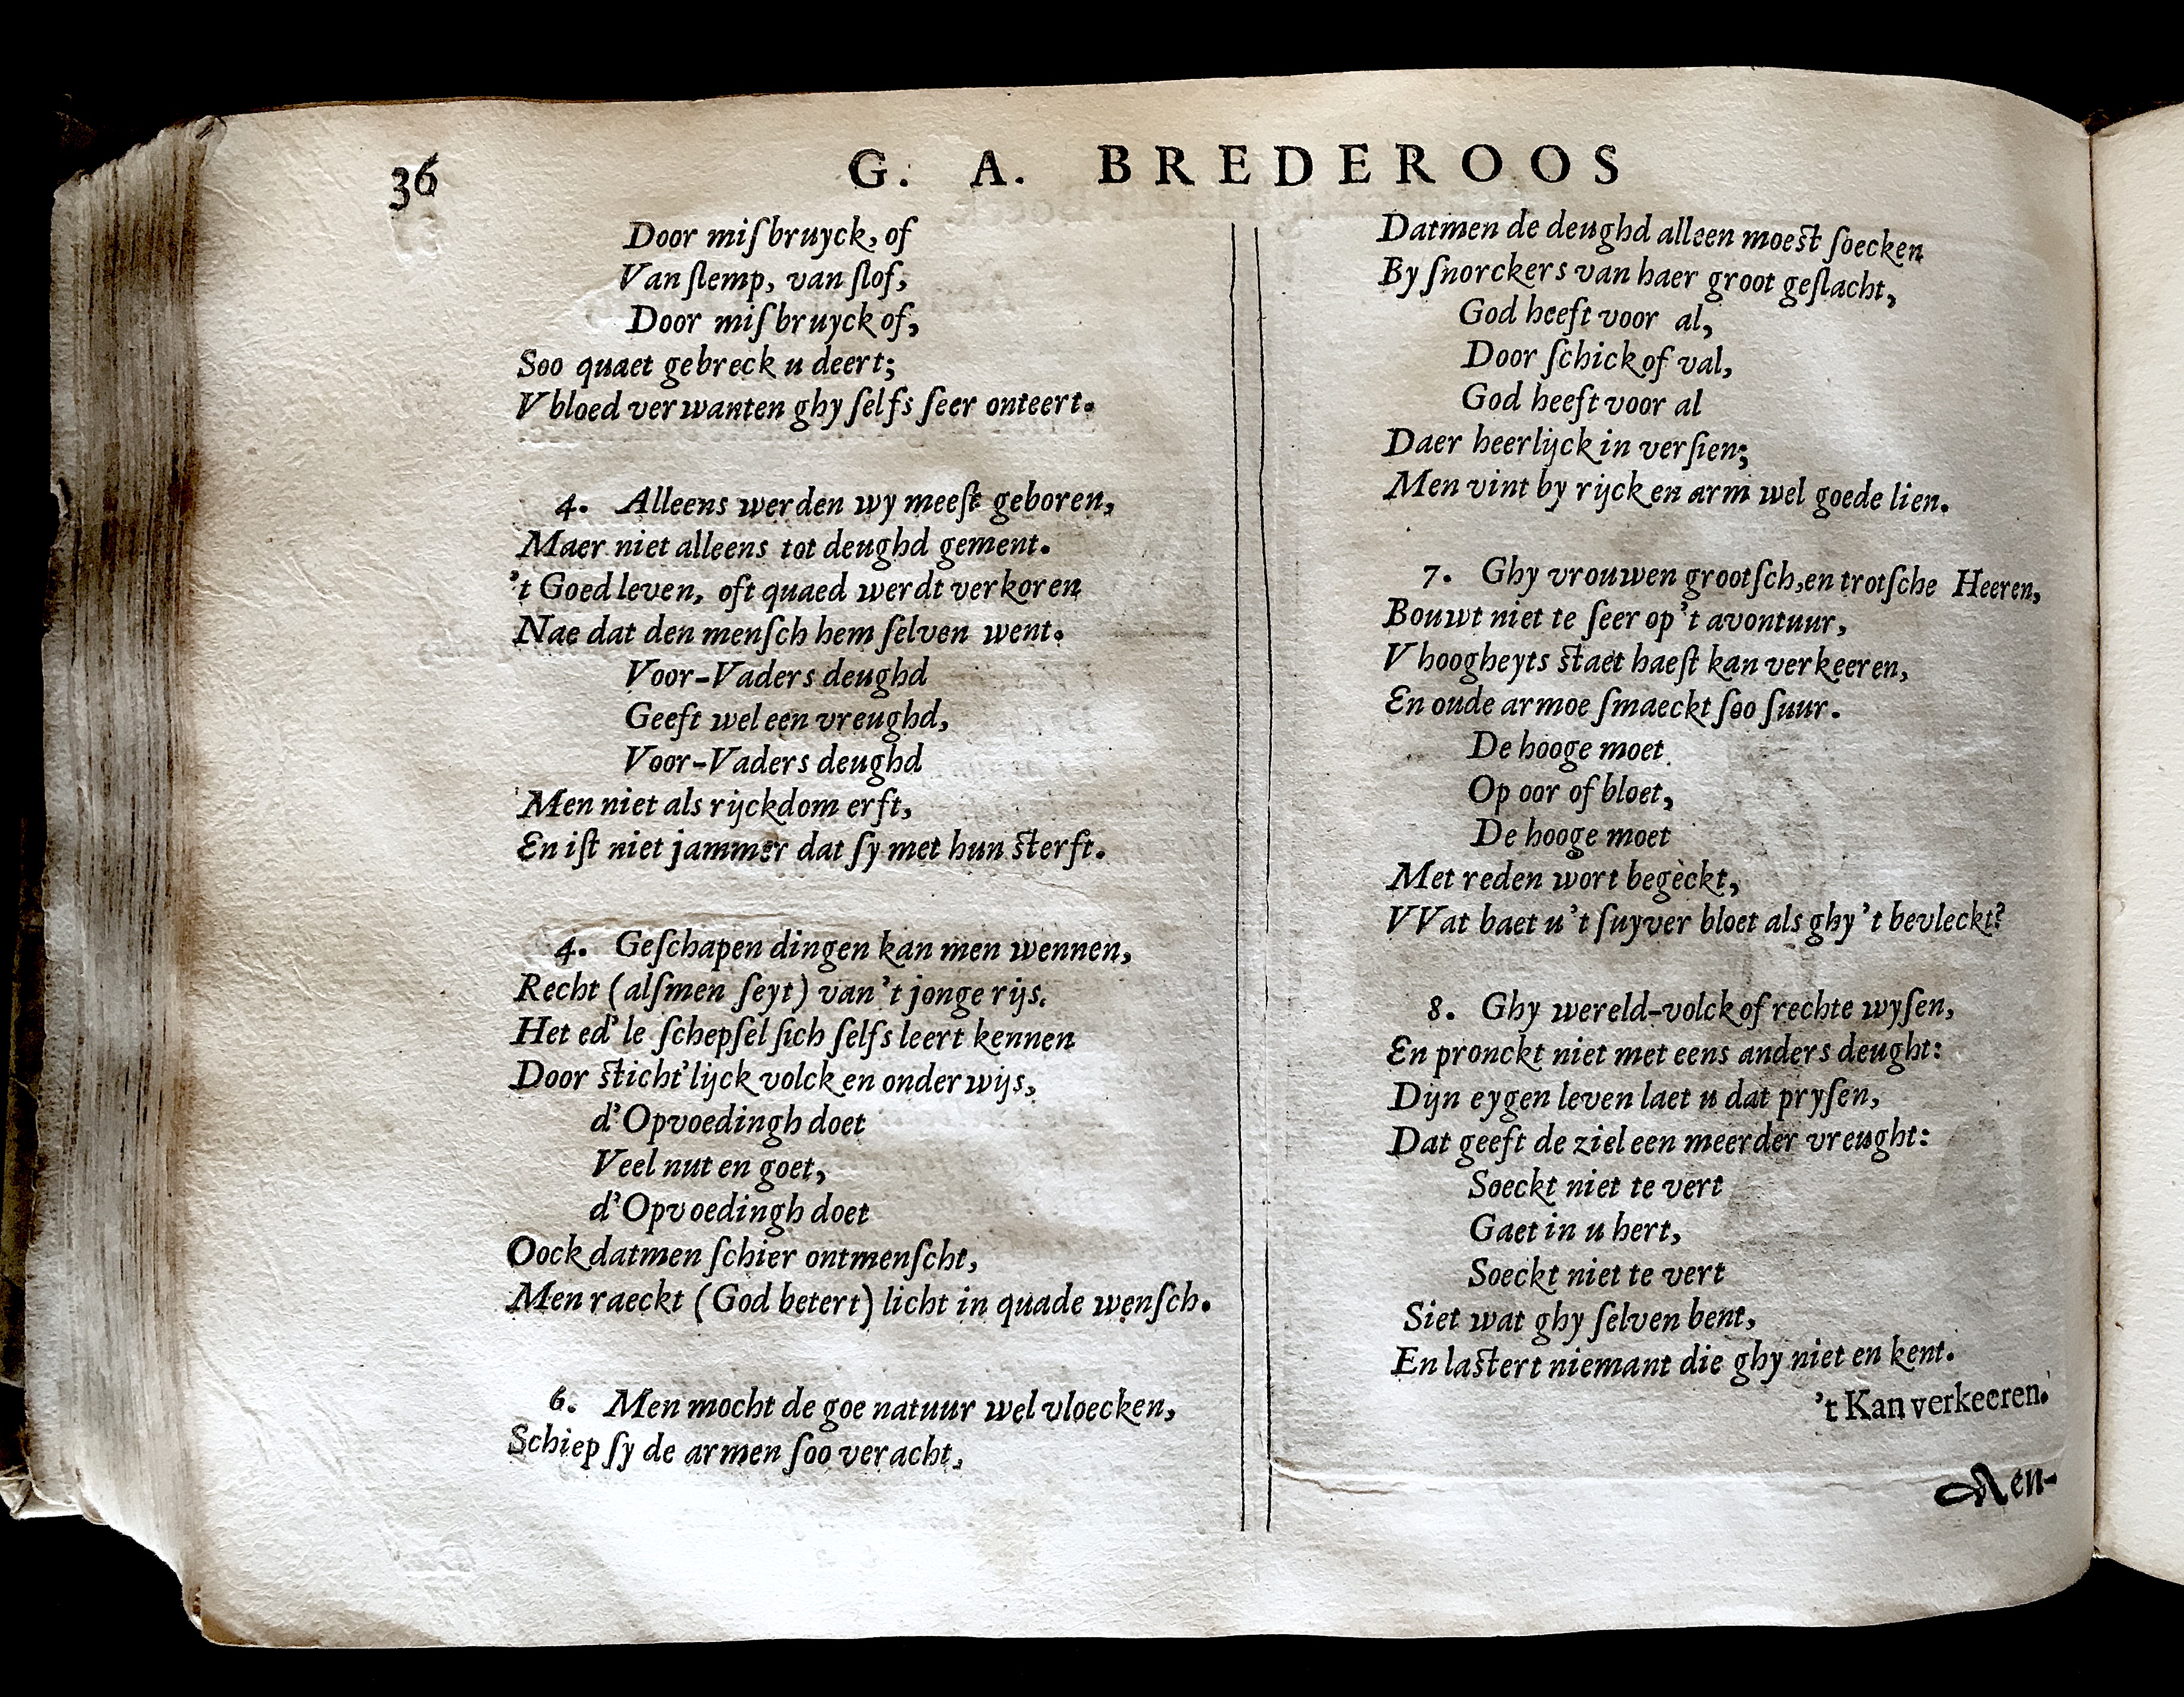 36
G. A. BREDEROOS
Door miſbruyck, of
Van ſlemp, van ſlof,
Door miſbruyck of,
Soo quaet gebreck u deert;
V bloed verwanten ghy ſelfs ſeer onteert.
4. Alleens werden wy meeſt geboren,
Maer niet alleens tot deughd gement.
't Goed leven, oft quaed werdt verkoren
Nae dat den menſch hem ſelven went.
Voor-Vaders deughd
Geeft wel een vreughd,
Voor-Vaders deughd
Men niet als rijckdom erft,
En iſt niet jammer dat ſy met hun ſterft.
4. Geſchapen dingen kan men wennen,
Recht (alſmen ſeyt) van 't jonge rijs.
Het ed'le ſchepſel ſich ſelfs leert kennen
Door ſticht'lijck volck en onderwijs,
d'Opvoedingh doet
Veel nut en goet,
d'Opvoedingh doet
Oock datmen ſchier ontmenſcht,
Men raeckt (God betert) licht in quade wenſch.
6. Men mocht de goe natuur wel vloecken,
Schiep ſy de armen ſoo veracht,
Datmen de deughd alleen moeſt ſoecken
By ſnorckers van haer groot geſlacht,
God heeft voor al,
Door ſchick of val,
God heeft voor al
Daer heerlijck in verſien;
Men vint by rijck en arm wel goede lien.
7. Ghy vrouwen grootſch, en trotſche Heeren,
Bouwt niet te ſeer op 't avontuur,
V hoogheyts ſtaet haeſt kan verkeeren,
En oude armoe ſmaeckt ſoo ſuur.
De hooge moet
Op oor of bloet,
De hooge moet
Met reden wort begèckt,
VVat baet u 't ſuyver bloet als ghy 't bevleckt?
8. Ghy wereld-volck of rechte wyſen,
En pronckt niet met eens anders deught:
Dijn eygen leven laet u dat pryſen,
Dat geeft de ziel een meerder vreught:
Soeckt niet te vert
Gaet in u hert,
Soeckt niet te vert
Siet wat ghy ſelven bent,
En laſtert niemant die ghy niet en kent.
't Kan verkeeren.
Aen-